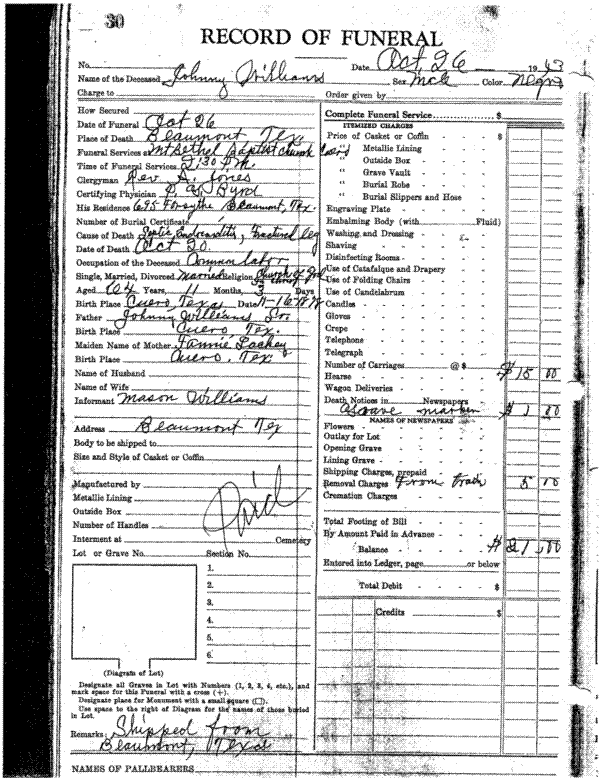 30
RECORD OF FUNERAL
No. Date Oct 26 1943
Name of the Deceased Johnny Williams Sex Male Color Negro
Charge to Order given by
How Secured
Date of Funeral Oct 26
Place of Death Beaumont Tex
Funeral Services at Mt Bethel Baptist Church
Time of Funeral Services 2:30 P.M.
Clergyman Rev. A. Jones
Certifying Physician P. G. Byrd
His Residence 695 Forsythe Beaumont, Tex.
Number of Burial Certificate
Cause of Death Septic Endocarditis, Fractured leg
Date of Death Oct 20.
Occupation of the Deceased Common labor
Single, Married, Divorced Married Religion Church of God in Christ
Aged 64 Years, 11 Months, 3 Days
Birth Place Cuero, Texas Date 11-16-1878
Father Johnny Williams Sr.
Birth Place Cuero, Tex.
Maiden Name of Mother Fannie Lackey
Birth Place Cuero, Tex
Name of Husband
Name of Wife
Informant Mason Williams
Address Beaumont Tex
Body to be shipped to
Size and Style of Casket or Coffin
Manufactured by
Metallic Lining
Outside Box
Number of Handles
Paid
Interment at Cemetery
Lot or Grave No. Section No.
1.
2.
3.
4.
5.
6.
(Diagram of Lot)
Designate all Graves in Lot with Numbers (1, 2, 3, 4, etc.), and
mark space for this Funeral with a cross (+).
Designate place for Monument with a small square (□).
Use space to the right of Diagram for the names of those buried
in Lot.
Remarks: Shipped from
Beaumont, Texas
NAMES OF PALLBEARERS
Complete Funeral Service $
ITEMIZED CHARGES
Price of Casket or Coffin
" Metallic Lining
" Outside Box
" Grave Vault
" Burial Robe
" Burial Slippers and Hose
Engraving Plate
Embalming Body (with Fluid)
Washing and Dressing
Shaving
Disinfecting Rooms
Use of Catafalque and Drapery
Use of Folding Chairs
Use of Candelabrum
Candles
Gloves
Crepe
Telephone
Telegraph
Number of Carriages @ $
Hearse $ 15 00
Wagon Deliveries
Death Notices in Newspapers
Grave marker $ 1 00
NAMES OF NEWSPAPERS
Flowers
Outlay for Lot
Opening Grave
Lining Grave
Shipping Charges, prepaid
Removal Charges From train 5 00
Cremation Charges
Total Footing of Bill
By Amount Paid in Advance
Balance $ 21 00
Entered into Ledger, page or below
Total Debit $
Credits $